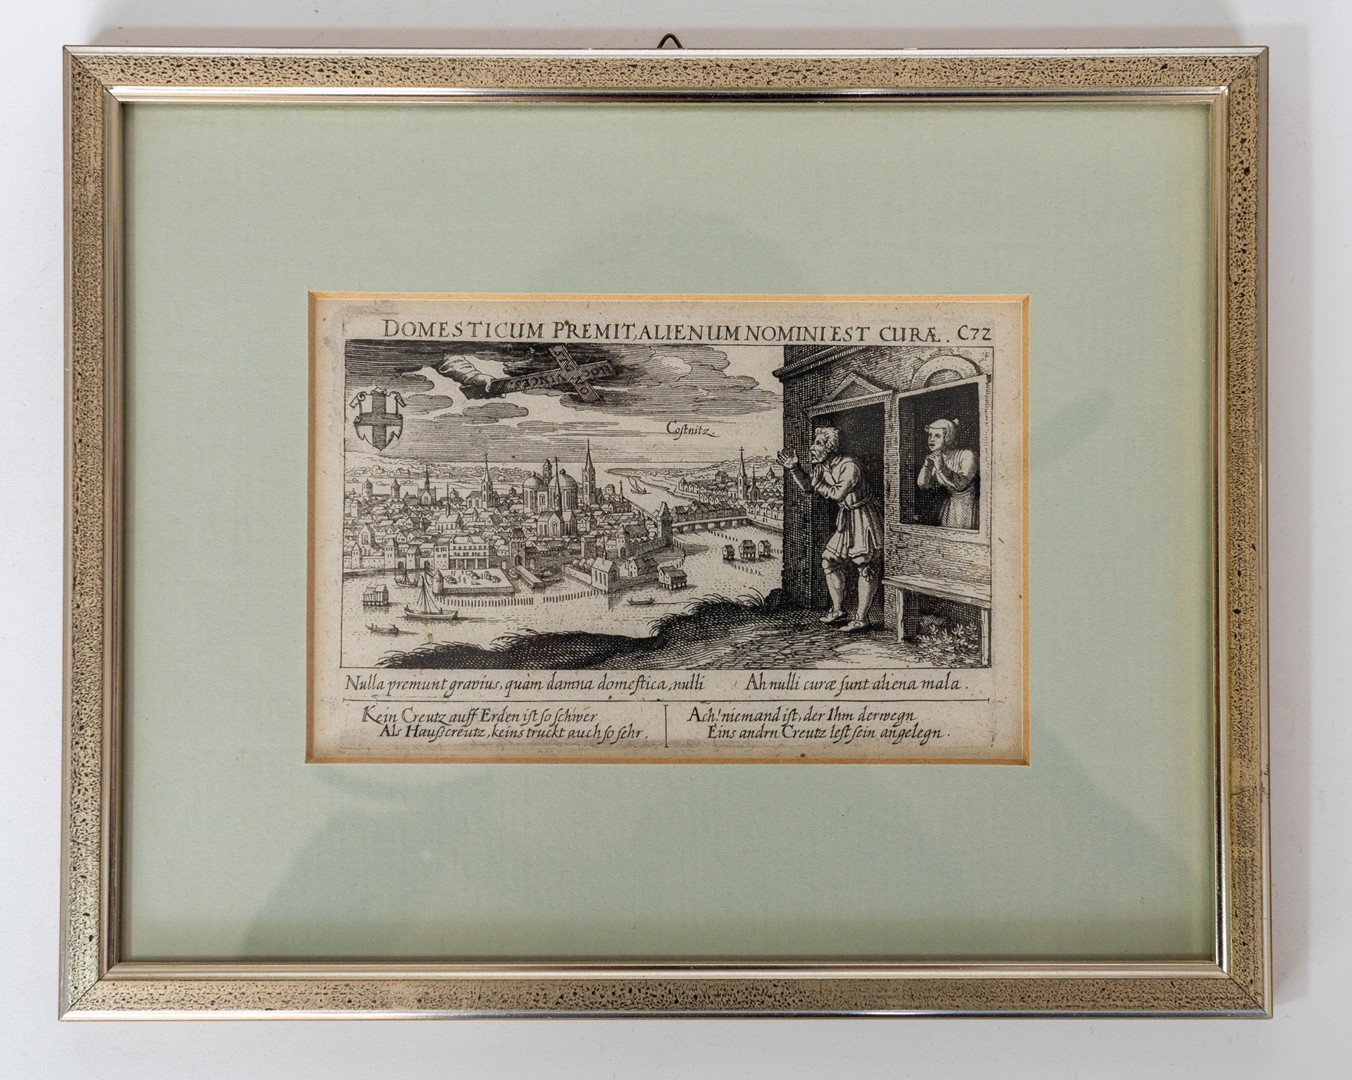 DOMESTICUM PREMIT, ALIENUM NOMINI EST CURÆ. C72
Costnitz
Nulla premunt gravius, quàm damna domestica, nulli Ah nulli curæ sunt aliena mala.
Kein Creutz auff Erden ist so schwer
Als Haußcreutz, keins truckt auch so sehr.
Ach! niemand ist, der Ihm derwegn
Eins andrn Creutz lest sein angelegn.